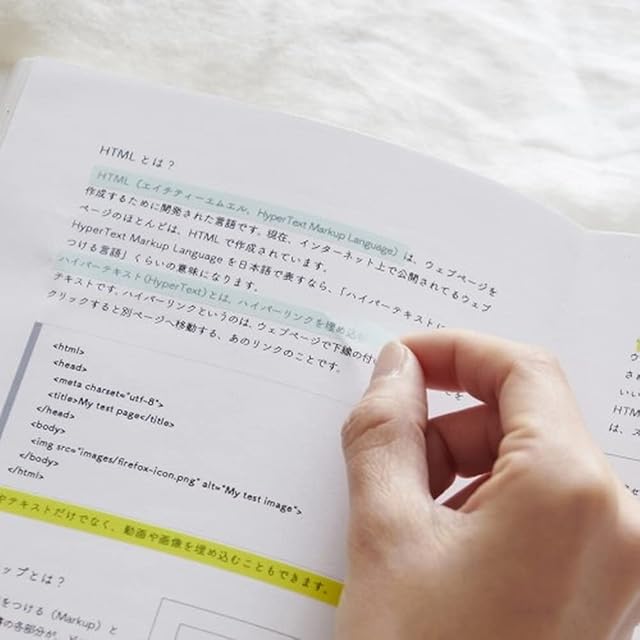 HTML とは？
HTML（エイチティーエムエル、HyperText Markup Language）は、ウェブページを
作成するために開発された言語です。現在、インターネット上で公開されてるウェブ
ページのほとんどは、HTML で作成されています。
HyperText Markup Language を日本語で表すなら、「ハイパーテキストに
つける言語」くらいの意味になります。
ハイパーテキスト(HyperText)とは、ハイパーリンクを埋め込
テキストです。ハイパーリンクというのは、ウェブページで下線の付
クリックすると別ページへ移動する、あのリンクのことです。
<html>
<head>
<meta charset="utf-8">
<title>My test page</title>
</head>
<body>
<img src="images/firefox-icon.png" alt="My test image">
</body>
</html>
やテキストだけでなく、動画や画像を埋め込むこともできます。
ップとは？
をつける（Markup）と
の各部分が、
HTM
は、ス